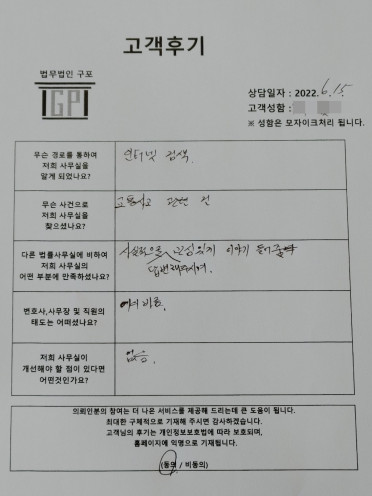 고객후기
법무법인 구포
GP
상담일자 : 2022. 6. 15
고객성함 :
※ 성함은 모자이크처리 됩니다.
무슨 경로를 통하여
저희 사무실을
알게 되었나요?
인터넷 검색.
무슨 사건으로
저희 사무실을
찾으셨나요?
교통사고 관련 건
다른 법률사무소에 비하여
저희 사무실의
어떤 부분에 만족하셨나요?
사실적으로 관심있게 이야기 들어주
답변해주시며.
변호사,사무장 및 직원의
태도는 어떠셨나요?
예의 바름.
저희 사무실이
개선해야 할 점이 있다면
어떤것인가요?
없음.
의뢰인분의 참여는 더 나은 서비스를 제공해 드리는데 큰 도움이 됩니다.
최대한 구체적으로 기재해 주시면 감사하겠습니다.
고객님의 후기는 개인정보보호법에 따라 보호되며,
홈페이지에 익명으로 기재됩니다.
(동의 / 비동의)